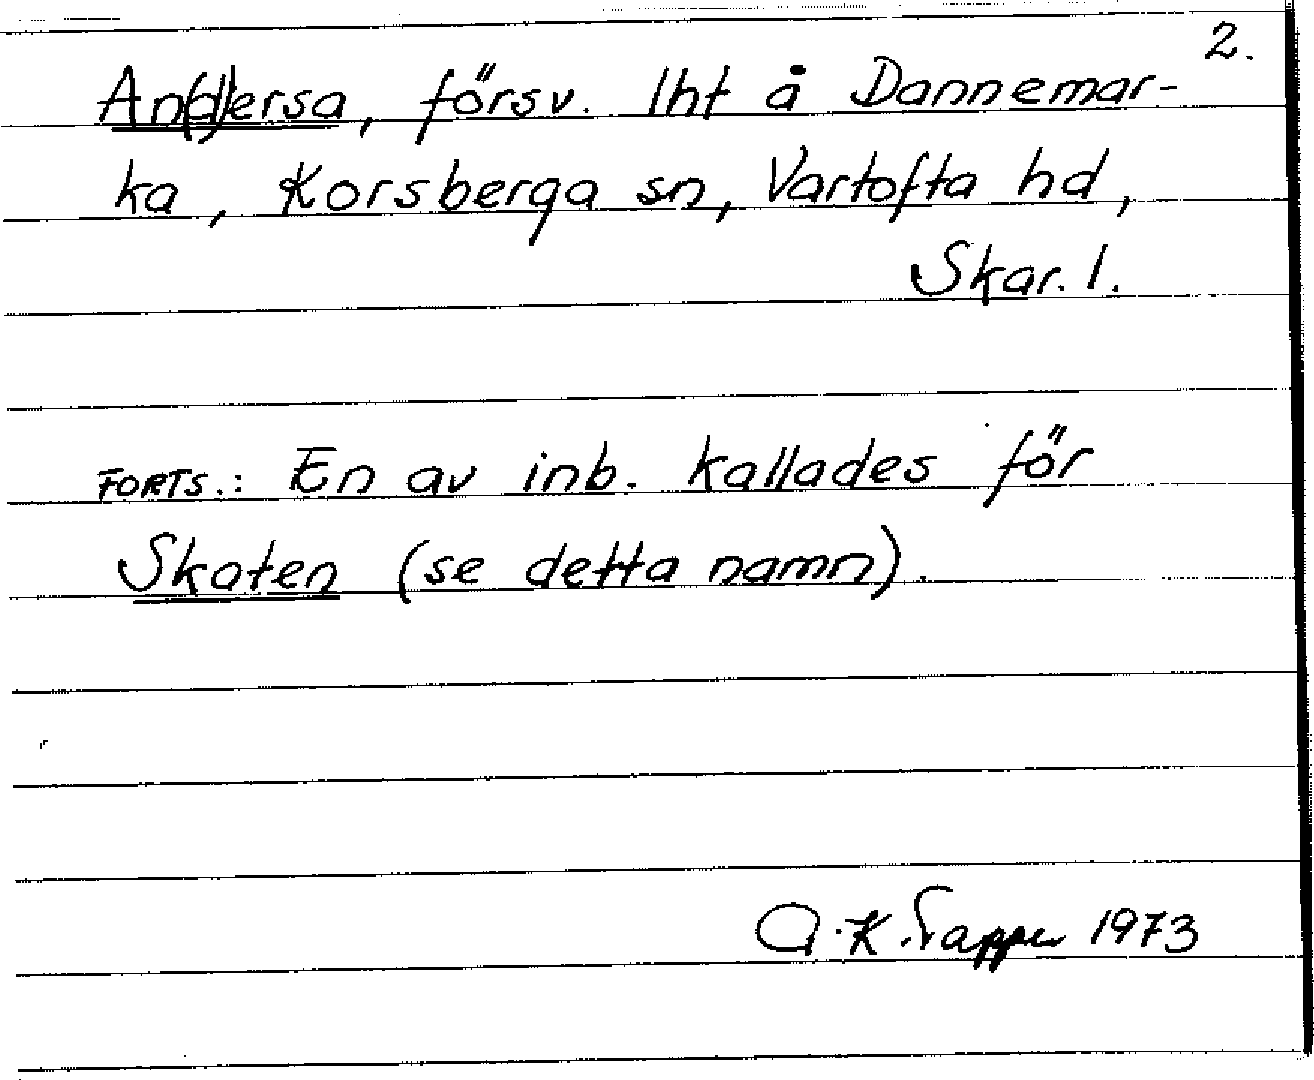 2.
An(d)ersa, försv. lht å Dannemar-
ka, Korsberga sn, Vartofta hd,
Skar. l.
FORTS.: En av inb. kallades för
Skaten (se detta namn).
A.K. 1973